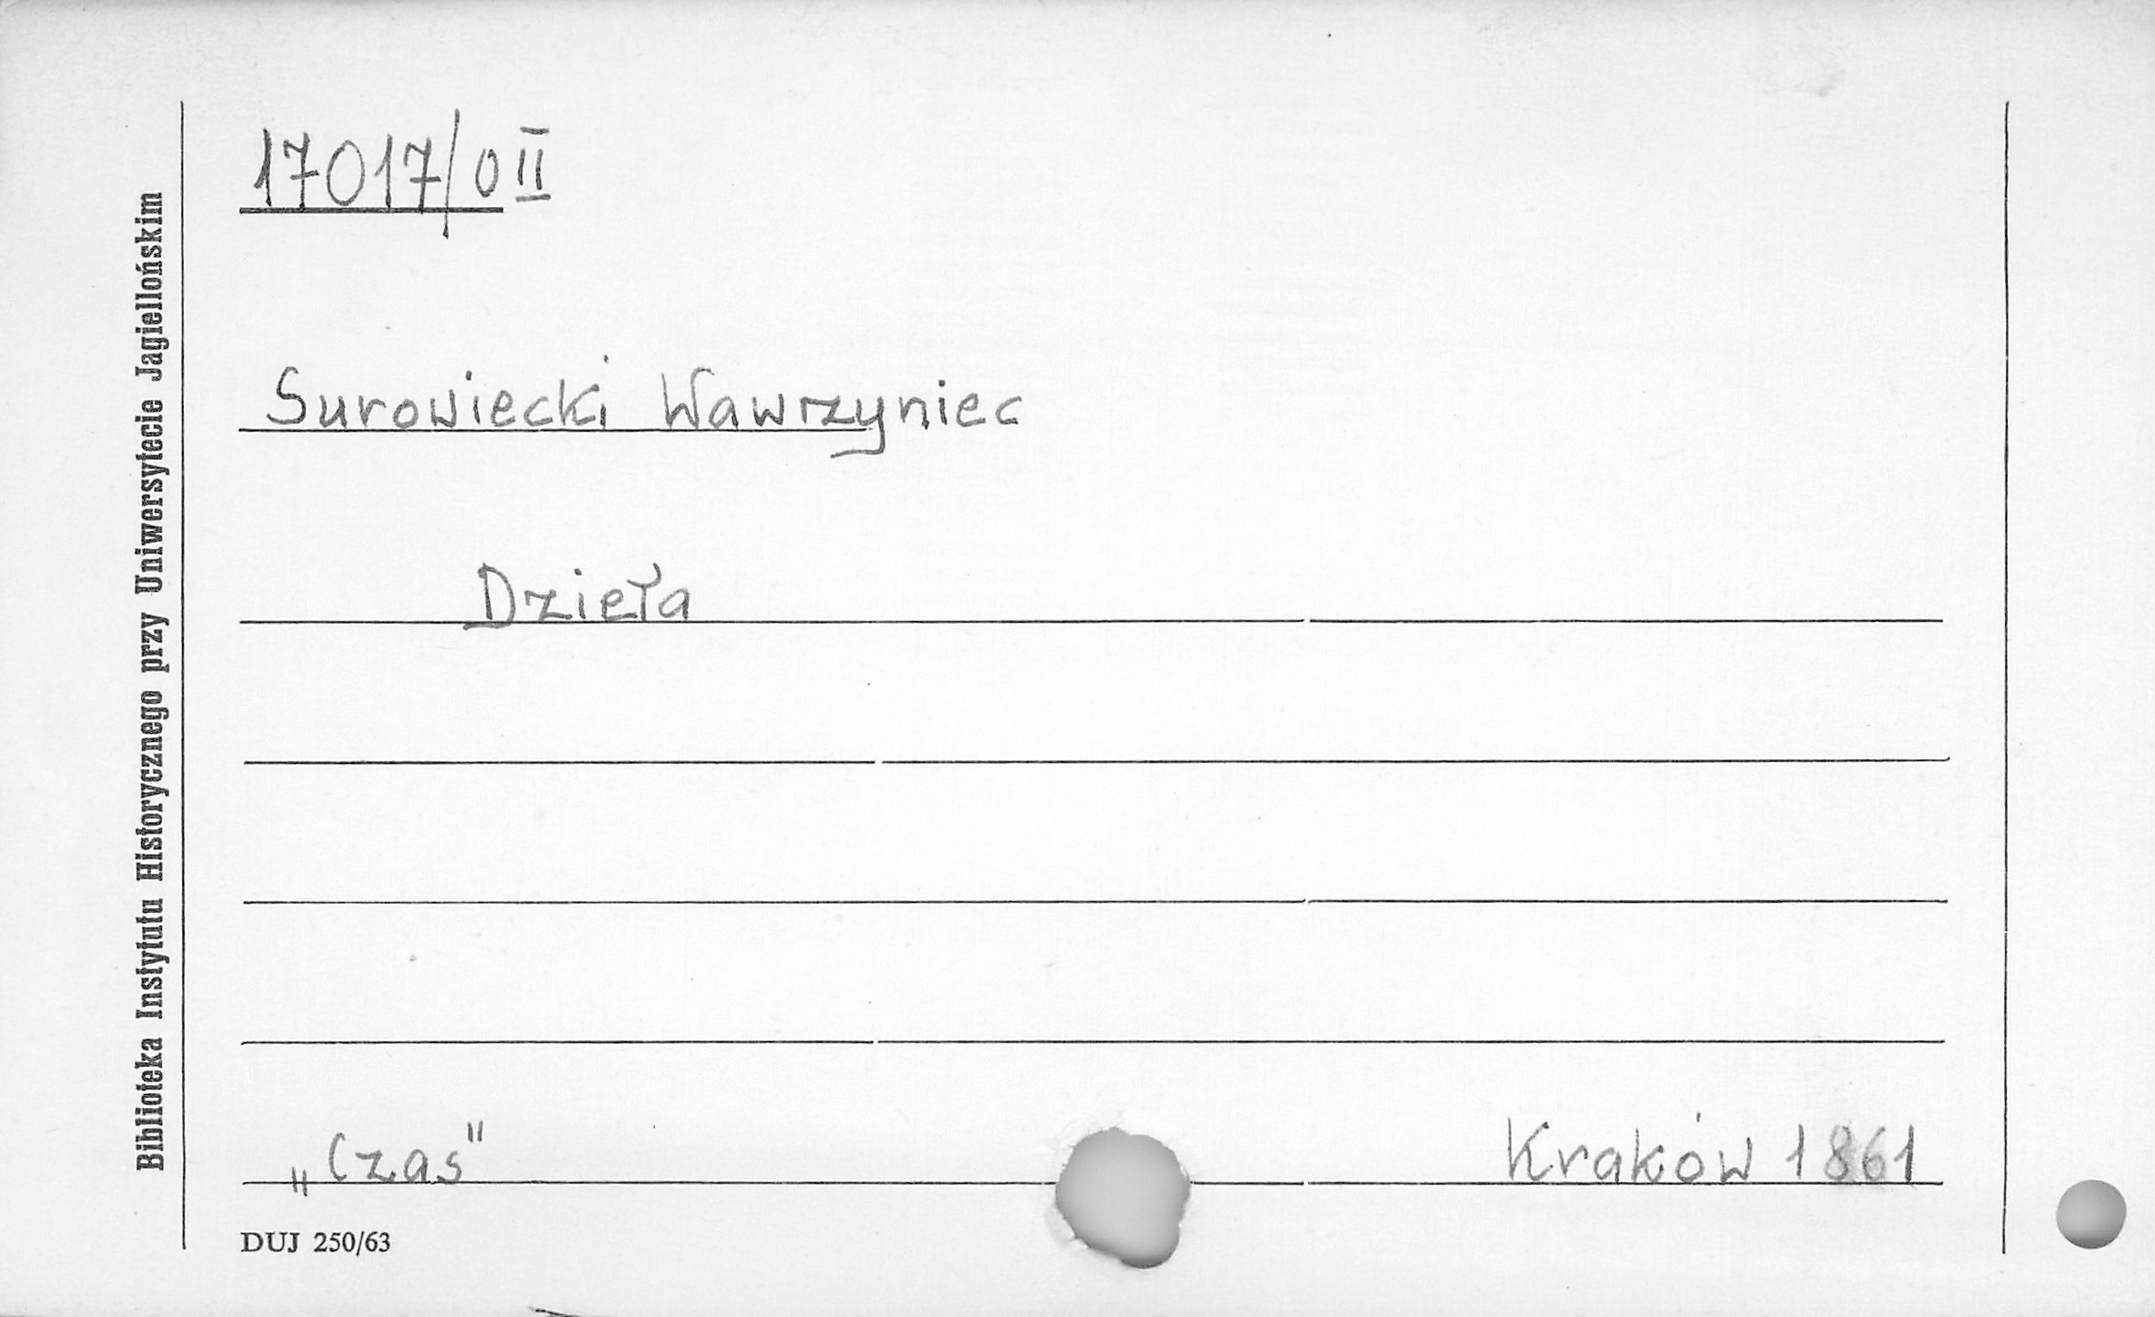 17017/0 II
Surowiecki Wawrzyniec
Dzieła
„Czas" Kraków 1861
DUJ 250/63
Biblioteka Instytutu Historycznego przy Uniwersytecie Jagiellońskim